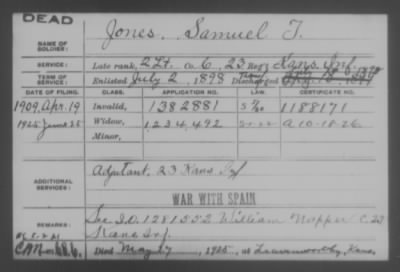 DEAD
Jones, Samuel T.
NAME OF SOLDIER:
SERVICE: Late rank, 2 Lt. Co. C, 23 Regt Kans. Inf.
TERM OF SERVICE: Enlisted July 2, 1898 Discharged
DATE OF FILING. CLASS. APPLICATION NO. LAW. CERTIFICATE NO.
1909, Apr. 19 Invalid, 1382881 1188171
1925 June 25 Widow, 1,234,492 A 10-18-26
Minor,
ADDITIONAL SERVICES: Adjutant, 23 Kans Inf
WAR WITH SPAIN
REMARKS: See I.O. 1281552 William Napper C. 23
Kans Inf.
Died May 17, 1925, at Leavenworth, Kans.